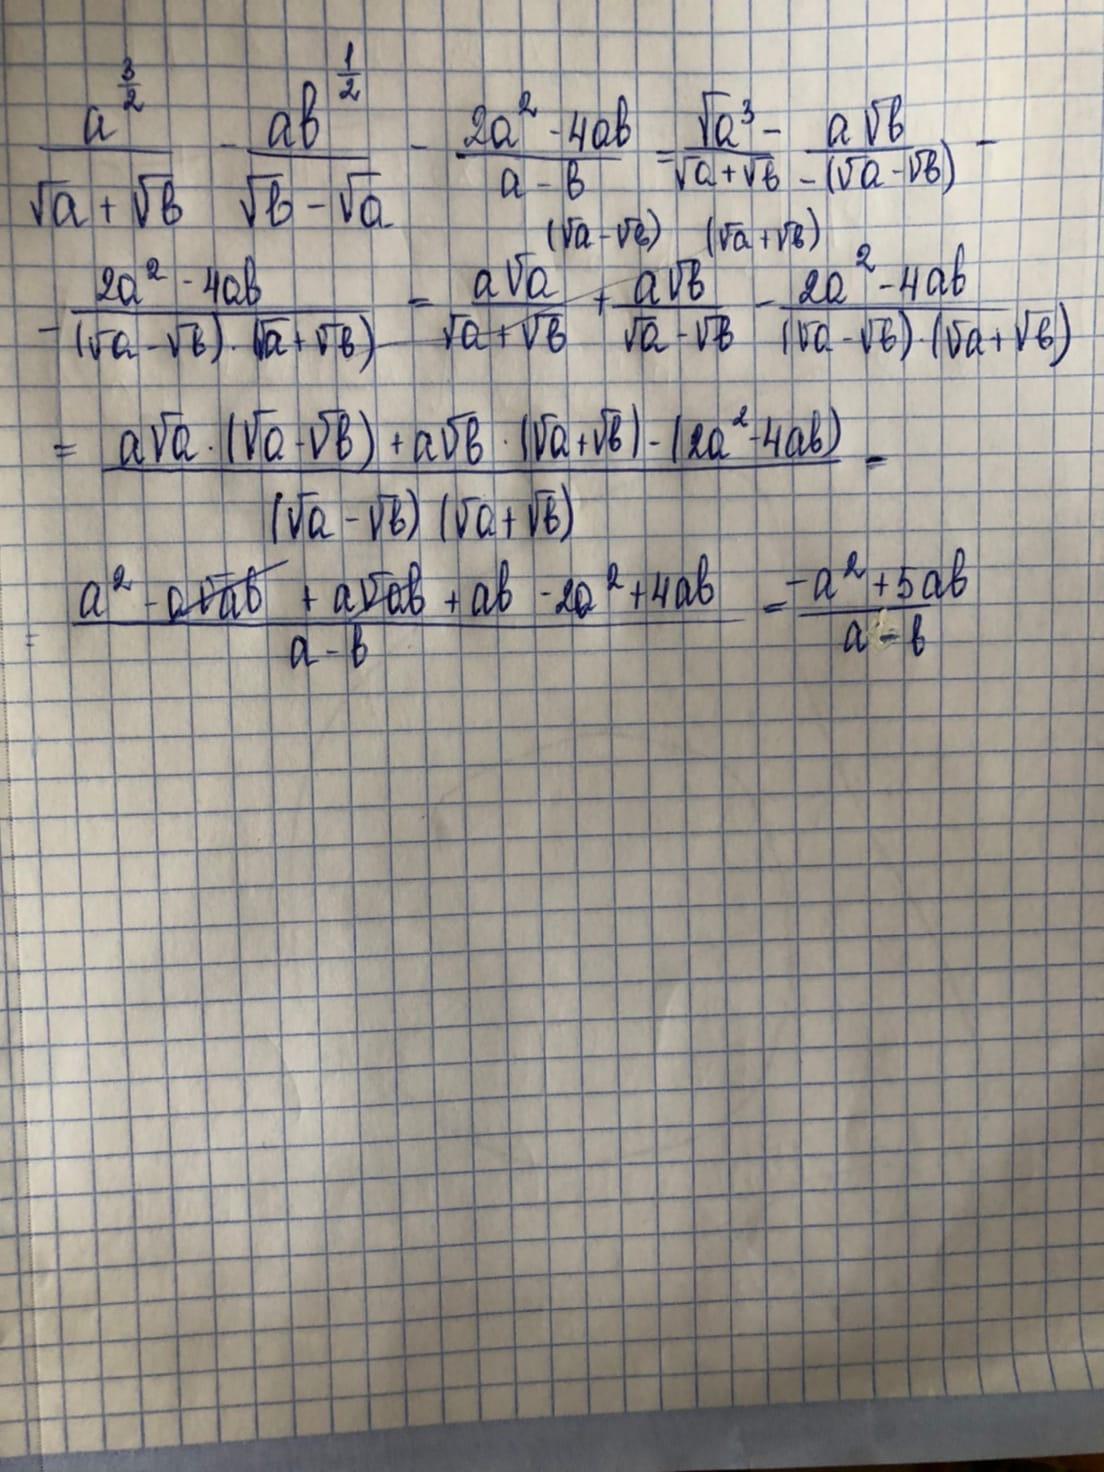 a^(3/2)/(√a + √b) - ab^(1/2)/(√b - √a) - (2a² - 4ab)/(a - b) = √a³/(√a + √b) - a√b/(-(√a - √b)) -
- (2a² - 4ab)/((√a - √b)·(√a + √b)) = a√a/(√a + √b) (√a - √b) + a√b/(√a - √b) (√a + √b) - (2a² - 4ab)/((√a - √b)·(√a + √b))
= (a√a·(√a - √b) + a√b·(√a + √b) - (2a² - 4ab))/((√a - √b)(√a + √b)) =
= (a² - a√ab + a√ab + ab - 2a² + 4ab)/(a - b) = (-a² + 5ab)/(a - b)